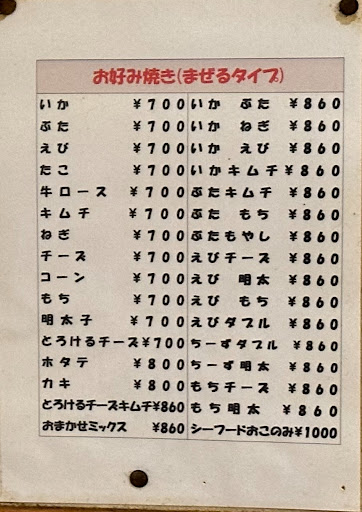 お好み焼き(まぜるタイプ)
いか ¥700
ぶた ¥700
えび ¥700
たこ ¥700
牛ロース ¥700
キムチ ¥700
ねぎ ¥700
チーズ ¥700
コーン ¥700
もち ¥700
明太子 ¥700
とろけるチーズ ¥700
ホタテ ¥800
カキ ¥800
とろけるチーズキムチ ¥860
おまかせミックス ¥860
いか ぶた ¥860
いか ねぎ ¥860
いか えび ¥860
いかキムチ ¥860
ぶたキムチ ¥860
ぶた もち ¥860
ぶたもやし ¥860
えびチーズ ¥860
えび 明太 ¥860
えび もち ¥860
えびダブル ¥860
ちーずダブル ¥860
ちーず明太 ¥860
もちチーズ ¥860
もち明太 ¥860
シーフードおこのみ ¥1000